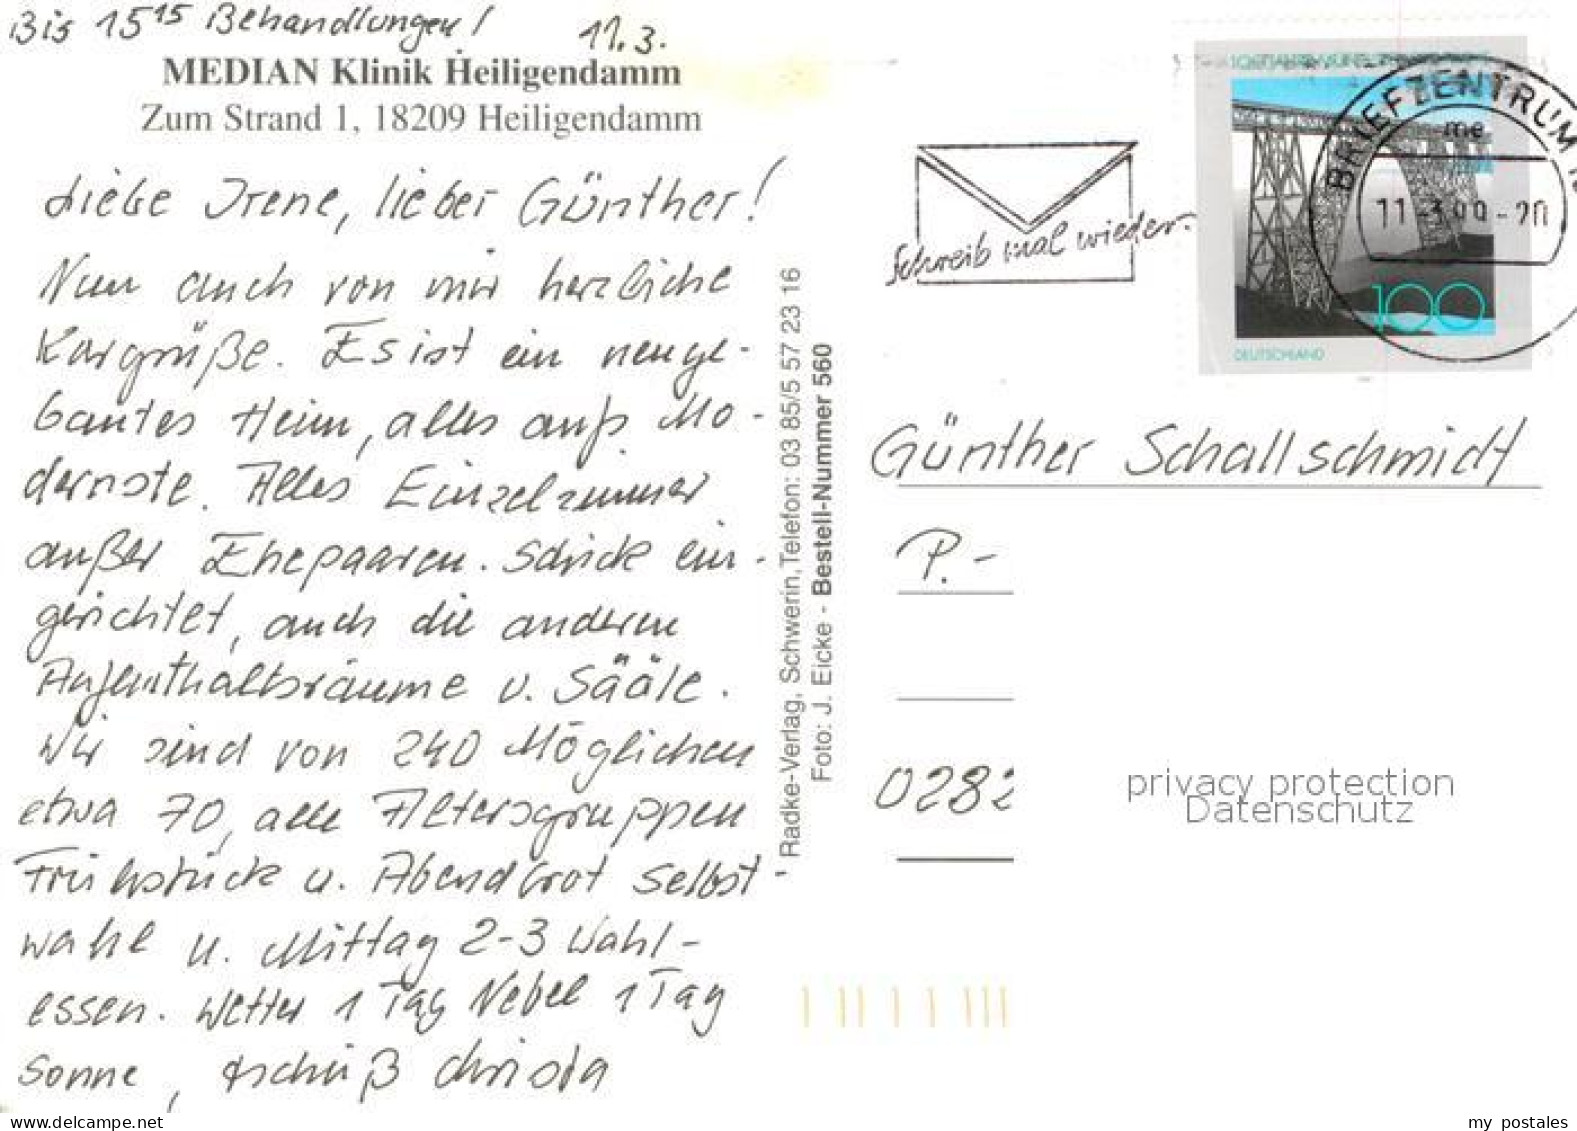 Bis 15 15 Behandlungen!
11.3.
MEDIAN Klinik Heiligendamm
Zum Strand 1, 18209 Heiligendamm
Liebe Irene, lieber Günther!
Nun auch von mir herzliche
Kurgrüße. Es ist ein neuge-
bautes Heim, alles aufs Mo-
dernste. Alles Einzelzimmer
außer Ehepaaren. Schick ein-
gerichtet, auch die anderen
Aufenthaltsräume u. Sääle.
Wir sind von 240 Möglichen
etwa 70, alle Altersgruppen
Frühstück u. Abendbrot selbst-
wahl u. Mittag 2-3 Wahl-
essen. Wetter 1 Tag Nebel 1 Tag
Sonne, tschüß Christa
Radke-Verlag, Schwerin, Telefon: 03 85/5 57 23 16
Foto: J. Eicke - Bestell-Nummer 560
Schreib mal wieder.
BRIEFZENTRUM
me
-20
100
DEUTSCHLAND
Günther Schallschmidt
P.-
0282
privacy protection
Datenschutz
www.delcampe.net
my postales